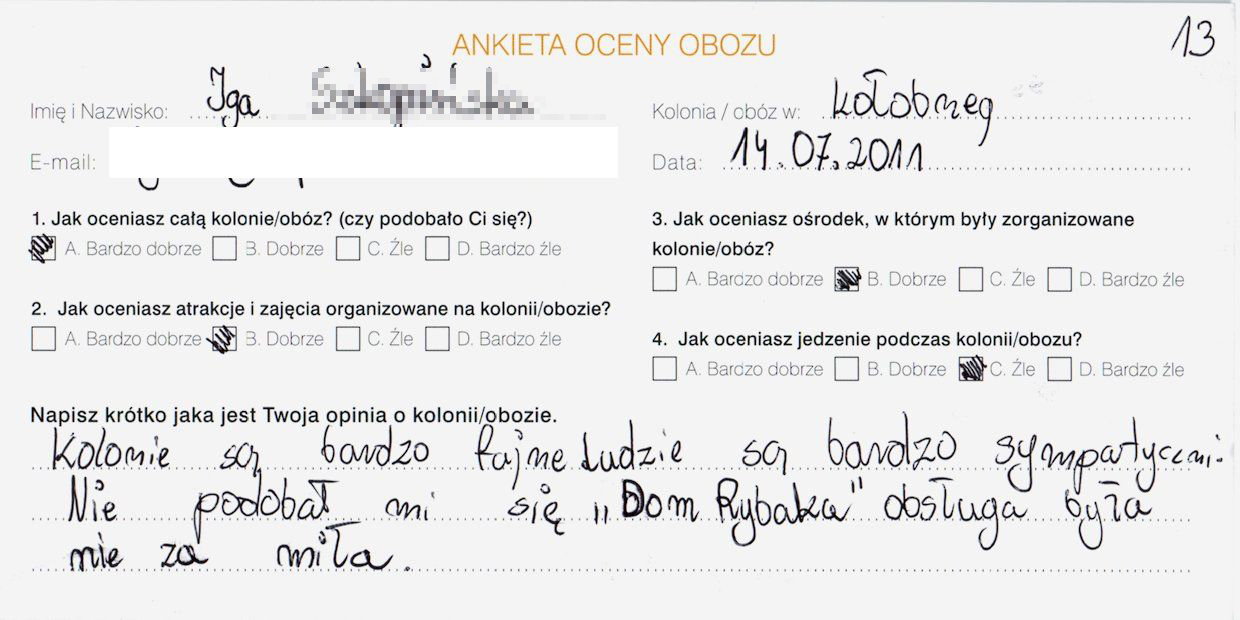 13
ANKIETA OCENY OBOZU
Imię i Nazwisko: Iga
Kolonia / obóz w: Kołobrzeg
E-mail:
Data: 14.07.2011
1. Jak oceniasz całą kolonie/obóz? (czy podobało Ci się?)
A. Bardzo dobrze B. Dobrze C. Źle D. Bardzo źle
2. Jak oceniasz atrakcje i zajęcia organizowane na kolonii/obozie?
A. Bardzo dobrze B. Dobrze C. Źle D. Bardzo źle
3. Jak oceniasz ośrodek, w którym były zorganizowane
kolonie/obóz?
A. Bardzo dobrze B. Dobrze C. Źle D. Bardzo źle
4. Jak oceniasz jedzenie podczas kolonii/obozu?
A. Bardzo dobrze B. Dobrze C. Źle D. Bardzo źle
Napisz krótko jaka jest Twoja opinia o kolonii/obozie.
Kolonie są bardzo fajne Ludzie są bardzo sympatyczni.
Nie podobał mi się „Dom Rybaka" obsługa była
nie za miła.